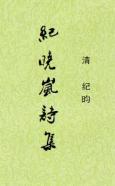 清 纪昀
紀曉嵐詩集